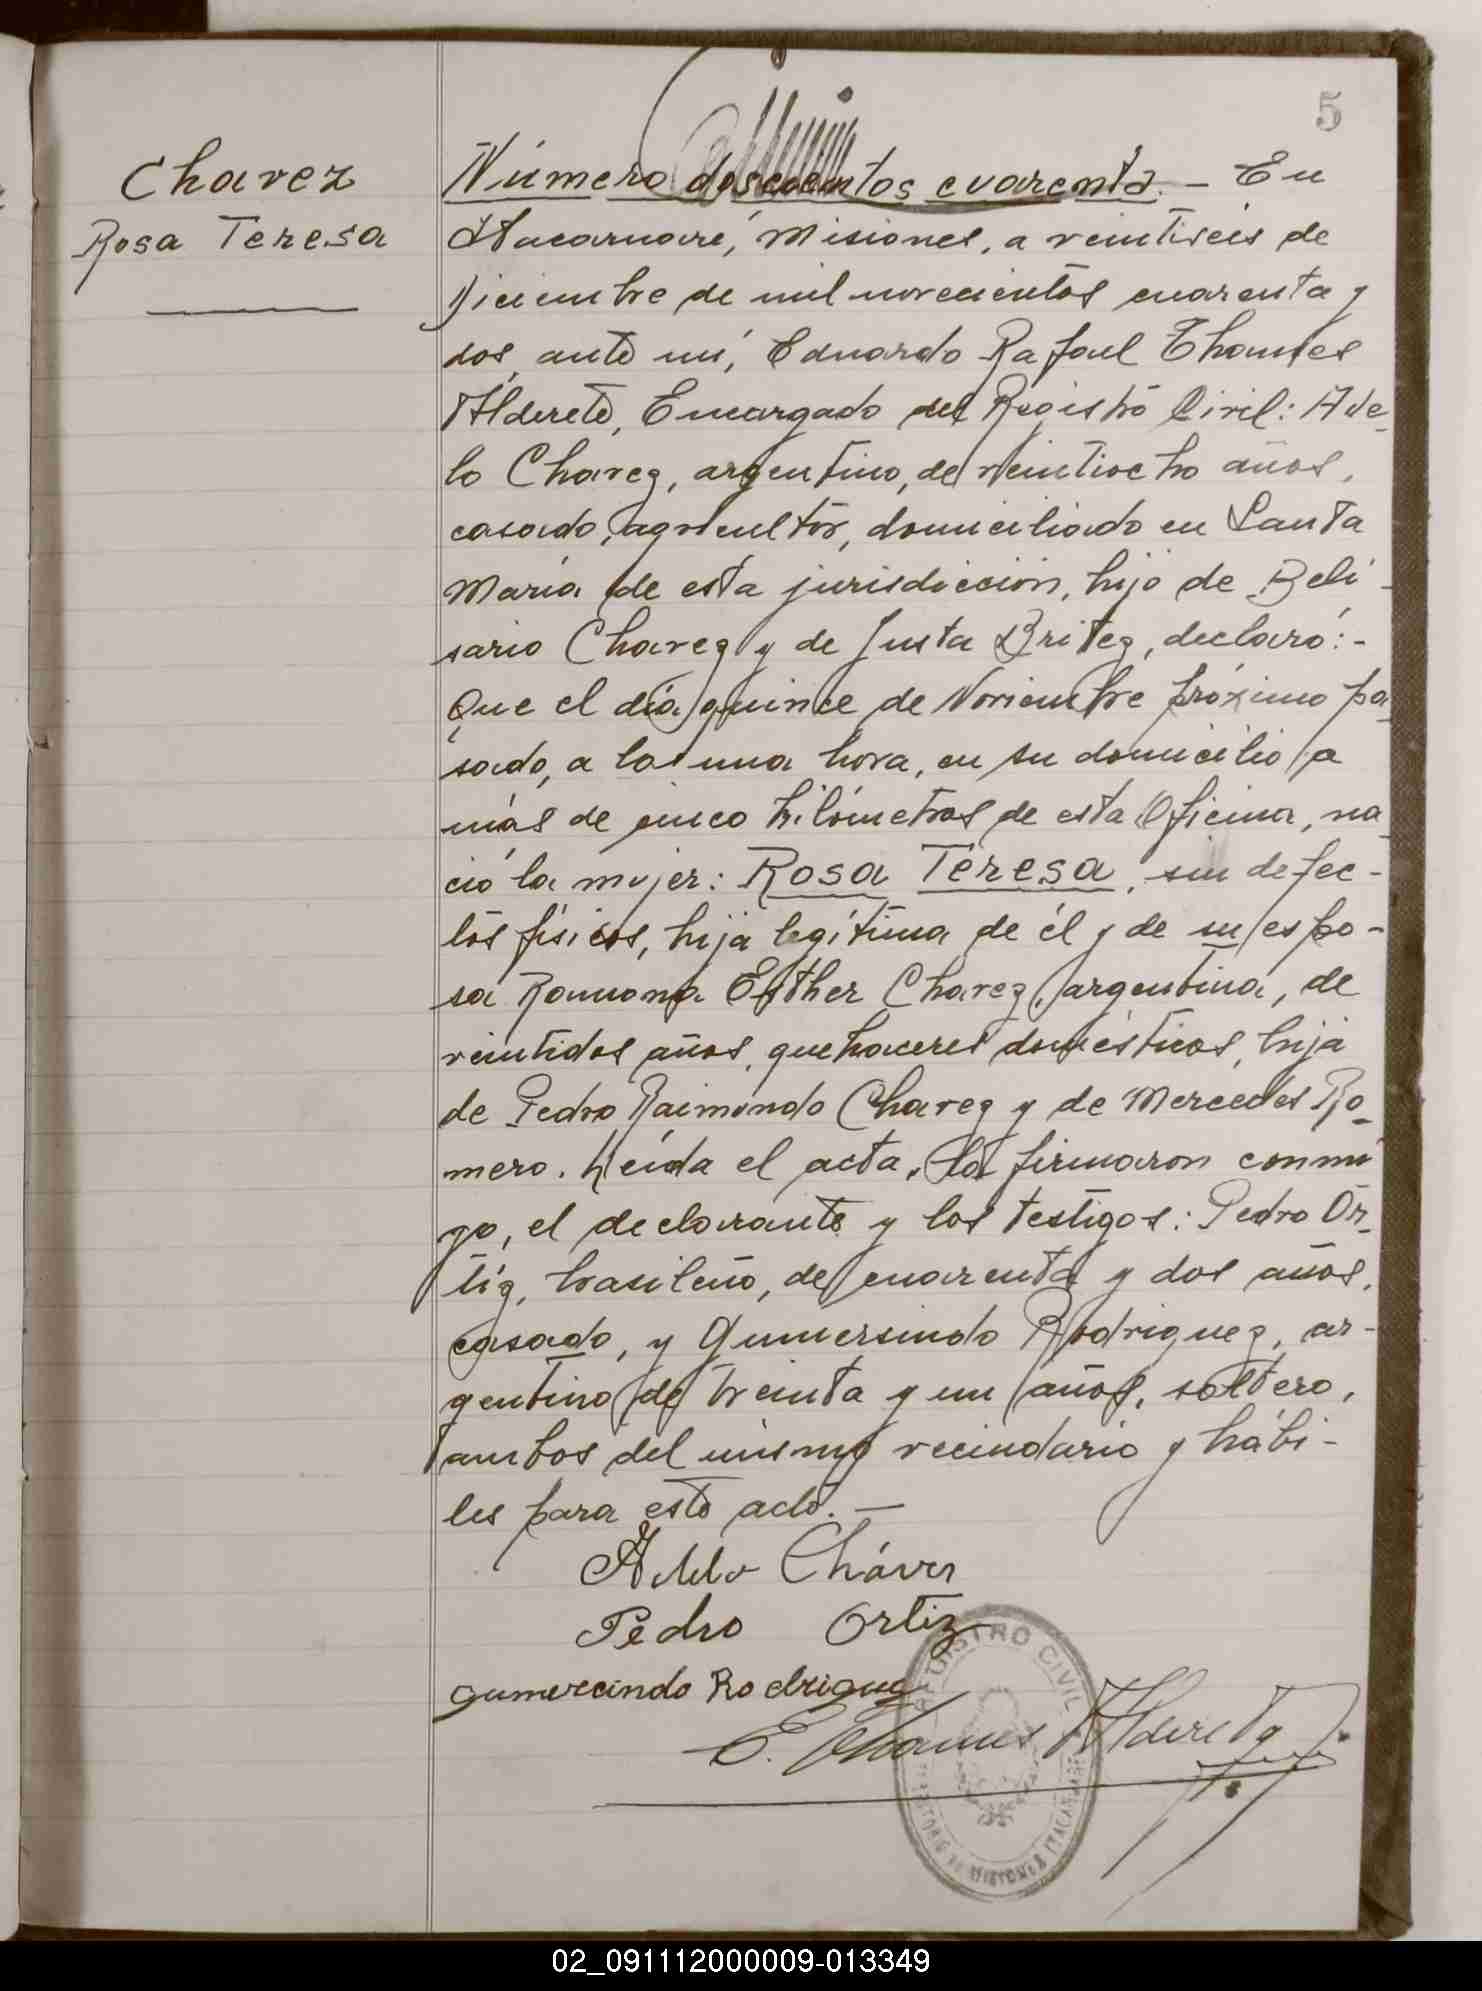 5
Chavez
Rosa Teresa
Número doscientos cuarenta. - En
Itacaruaré, Misiones, a veintiseis de
Diciembre de mil novecientos cuarenta y
dos, ante mí, Eduardo Rafael Thames
Alderete, Encargado del Registro Civil: Ade-
lo Chavez, argentino, de veintiocho años,
casado, agricultor, domiciliado en Santa
María de esta jurisdiccion, hijo de Beli-
sario Chavez y de Justa Britez, declaró:-
Que el día quince de Noviembre próximo pa-
sado, a la una hora, en su domicilio a
más de cinco kilómetros de esta Oficina, na-
ció la mujer: Rosa Teresa, sin defec-
tos físicos, hija legítima de él y de su espo-
sa Ramona Esther Chavez, argentina, de
veintidos años, quehaceres domésticos, hija
de Pedro Raimundo Chavez y de Mercedes Ro-
mero. Leída el acta, la firmaron conmi
go, el declarante y los testigos: Pedro Or-
tiz, brasileño, de cuarenta y dos años,
casado, y Gumersindo Rodriguez, ar-
gentino de treinta y un años, soltero,
ambos del mismo vecindario y hábi-
les para este acto. —
Adelo Cháves
Pedro Ortiz
Gumercindo Rodriguez
E. Thames Alderete
REGISTRO CIVIL
TERRITORIO DE MISIONES ITACARUARE
02_091112000009-013349